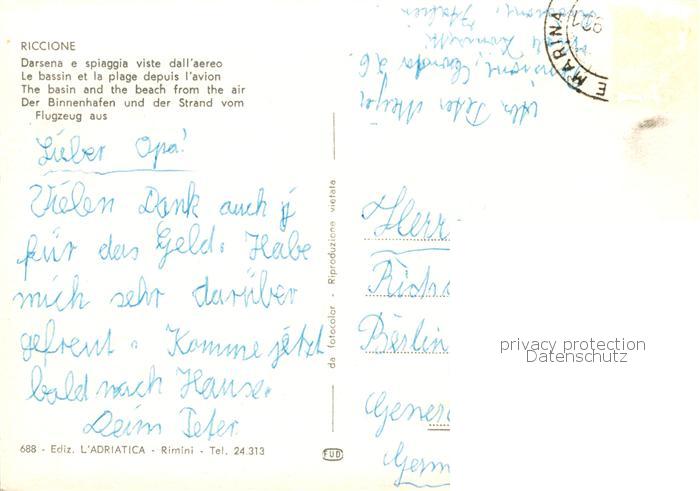 RICCIONE
Darsena e spiaggia viste dall'aereo
Le bassin et la plage depuis l'avion
The basin and the beach from the air
Der Binnenhafen und der Strand vom
Flugzeug aus
Lieber Opa!
Vielen Dank auch
für das Geld. Habe
mich sehr darüber
gefreut. Komme jetzt
bald nach Hause.
Deim Peter
688 - Ediz. L'ADRIATICA - Rimini - Tel. 24.313
da fotocolor - Riproduzione vietata
FUD
Abs. Peter
Italien
E MARINA
Herr
Berlin
Germ
privacy protection
Datenschutz